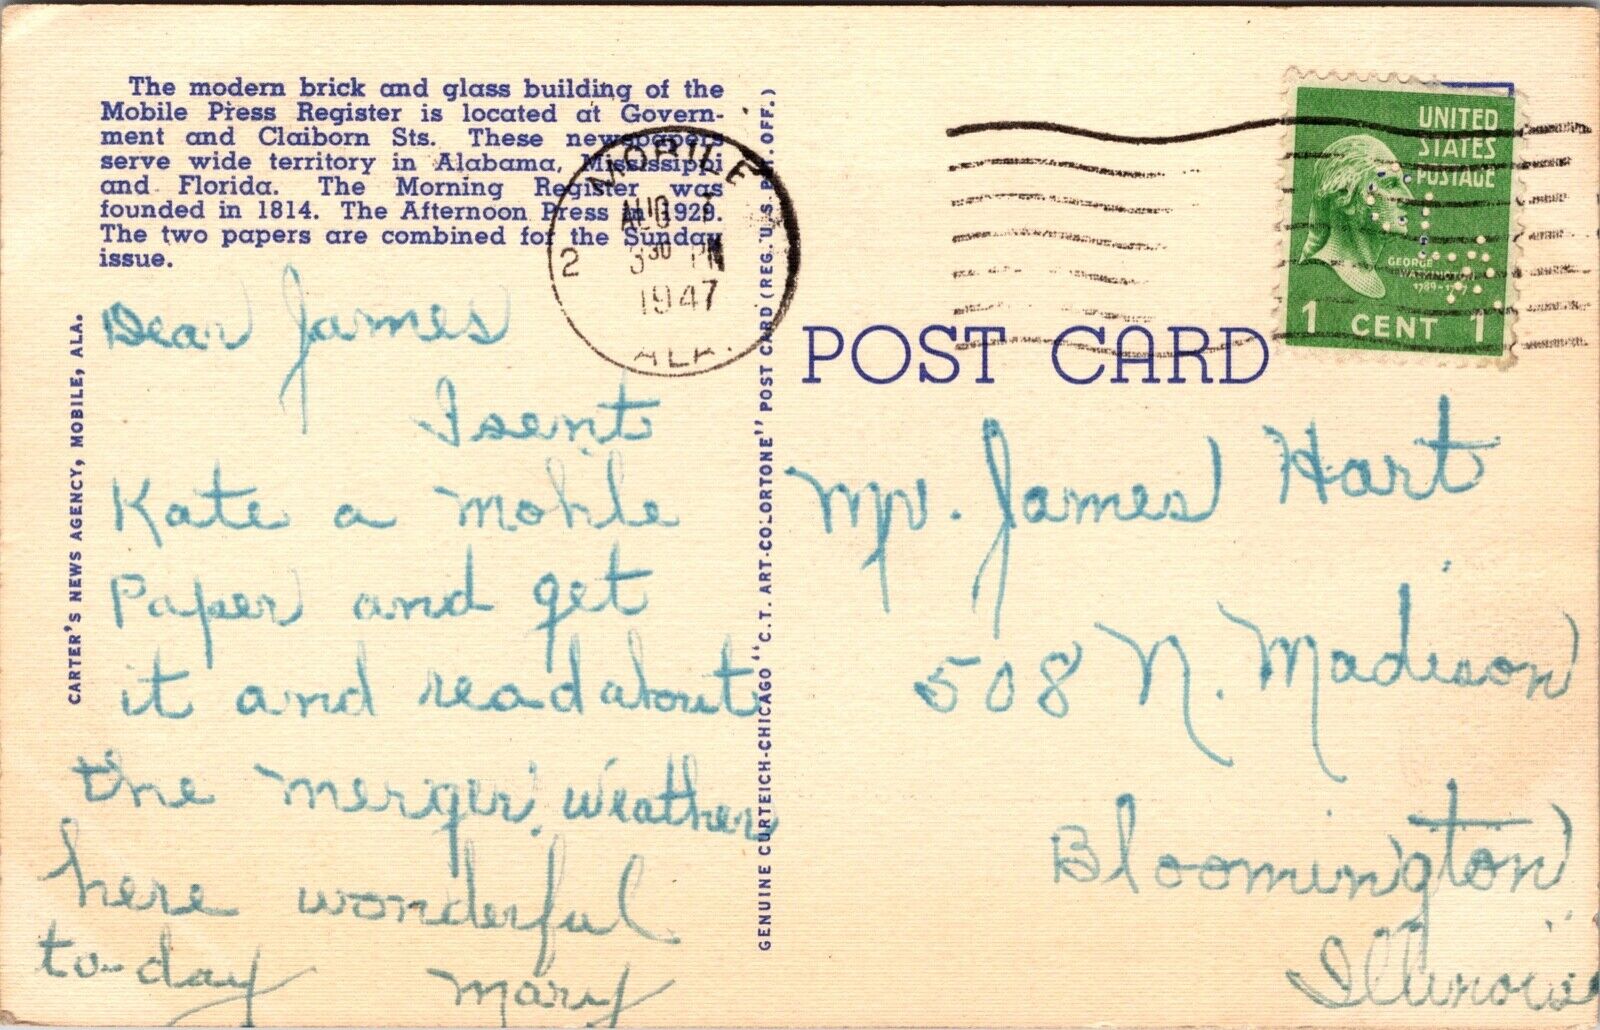 The modern brick and glass building of the
Mobile Press Register is located at Govern-
ment and Claiborn Sts. These newspapers
serve wide territory in Alabama, Mississippi
and Florida. The Morning Register was
founded in 1814. The Afternoon Press in 1929.
The two papers are combined for the Sunday
issue.
MOBILE
AUG
3 30 PM
1947
2
ALA.
UNITED
STATES
POSTAGE
GEORGE
WASHINGTON
1 CENT 1
POST CARD
CARTER'S NEWS AGENCY, MOBILE, ALA.
GENUINE CURTEICH-CHICAGO "C.T. ART-COLORTONE" POST CARD (REG. U.S. PAT. OFF.)
Dear James
I sent
Kate a Mobile
Paper and get
it and read about
the merger. Weather
here wonderful
to-day Mary
Mr. James Hart
508 N. Madison
Bloomington
Illinois